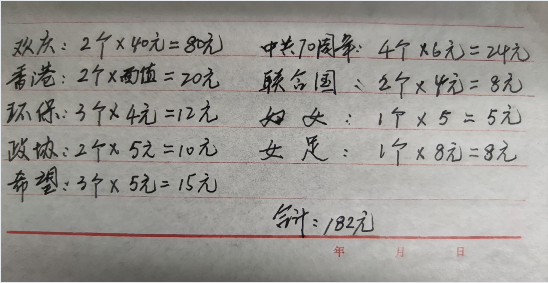 欢庆：2个×40元=80元
香港：2个×面值=20元
环保：3个×4元=12元
政协：2个×5元=10元
希望：3个×5元=15元
中共70周年：4个×6元=24元
联合国：2个×4元=8元
妇女：1个×5=5元
女足：1个×8元=8元
合计：182元
年 月 日